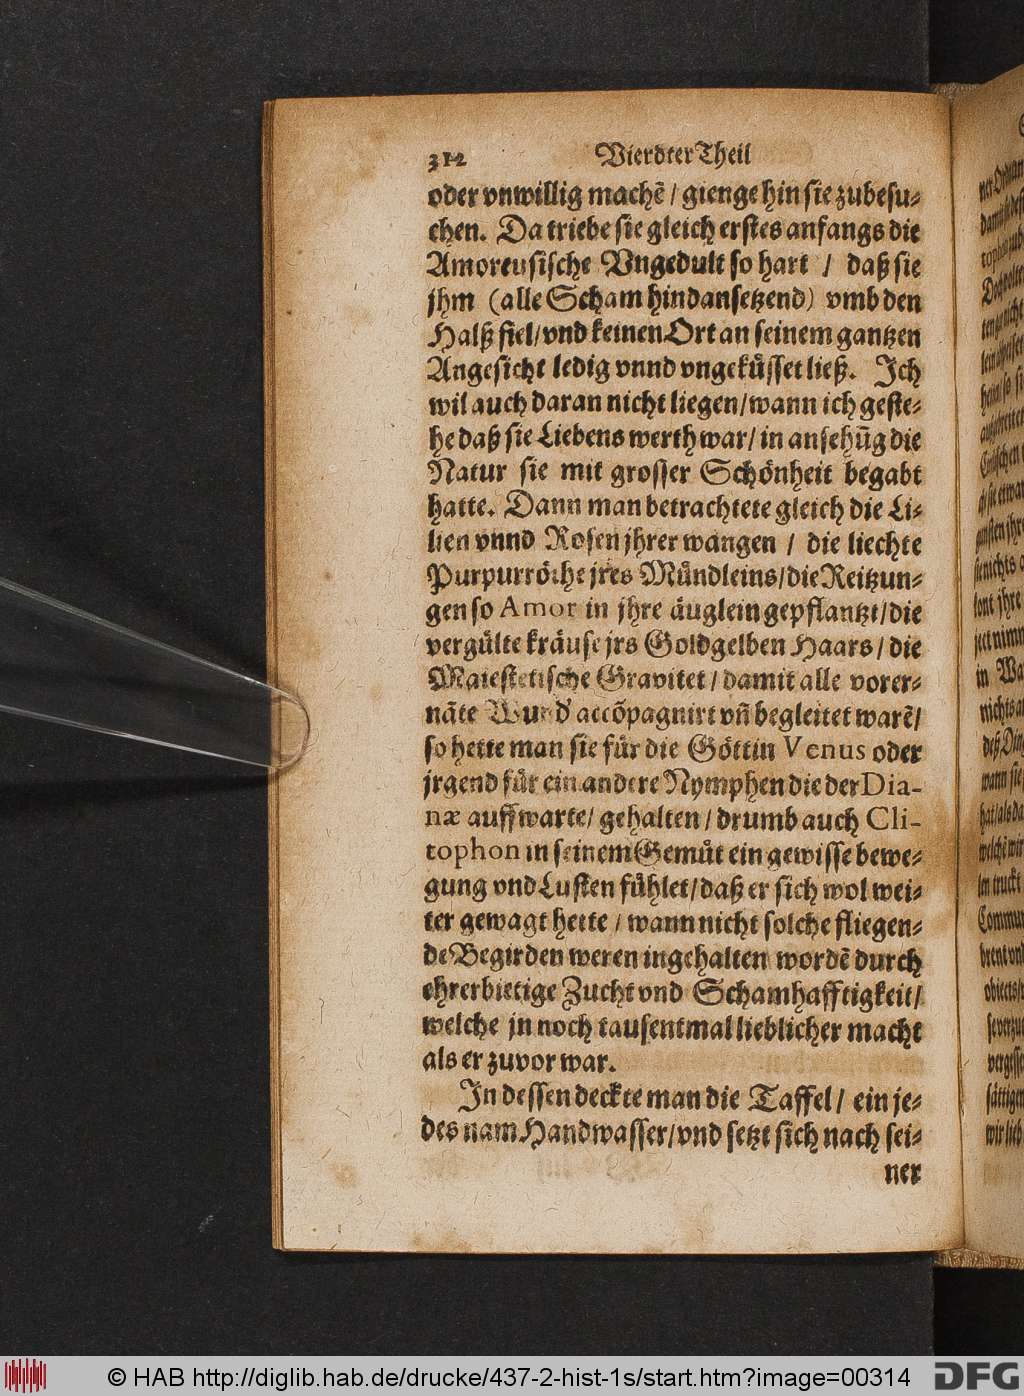 312 Vierdter Theil
oder vnwillig machẽ / gienge hin sie zubesu-
chen. Da triebe sie gleich erstes anfangs die
Amoreusische Vngedult so hart / daß sie
jhm (alle Scham hindansetzend) vmb den
Halß fiel / vnd keinen Ort an seinem gantzen
Angesicht ledig vnnd vngeküsset ließ. Ich
wil auch daran nicht liegen / wann ich geste-
he daß sie Liebens werth war / in ansehũg die
Natur sie mit grosser Schönheit begabt
hatte. Dann man betrachtete gleich die Li-
lien vnnd Rosen jhrer wangen / die liechte
Purpurröthe jres Mündleins / die Reitzun-
gen so Amor in jhre äuglein gepflantzt / die
vergülte kräuse jrs Goldgelben Haars / die
Maiestetische Gravitet / damit alle vorer-
nãte accõpagnirt vñ begleitet warẽ /
so hette man sie für die Göttin Venus oder
jrgend für ein andere Nymphen die der Dia-
næ auffwarte / gehalten / drumb auch Cli-
tophon in seinem Gemüt ein gewisse bewe-
gung vnd Lusten fühlet / daß er sich wol wei-
ter gewagt hette / wann nicht solche fliegen-
de Begirden weren ingehalten wordẽ durch
ehrerbietige Zucht vnd Schamhafftigkeit /
welche jn noch tausentmal lieblicher macht
als er zuvor war.
In dessen deckte man die Taffel / ein je-
des nam Handwasser / vnd setzt sich nach sei-
ner
© HAB http://diglib.hab.de/drucke/437-2-hist-1s/start.htm?image=00314
DFG